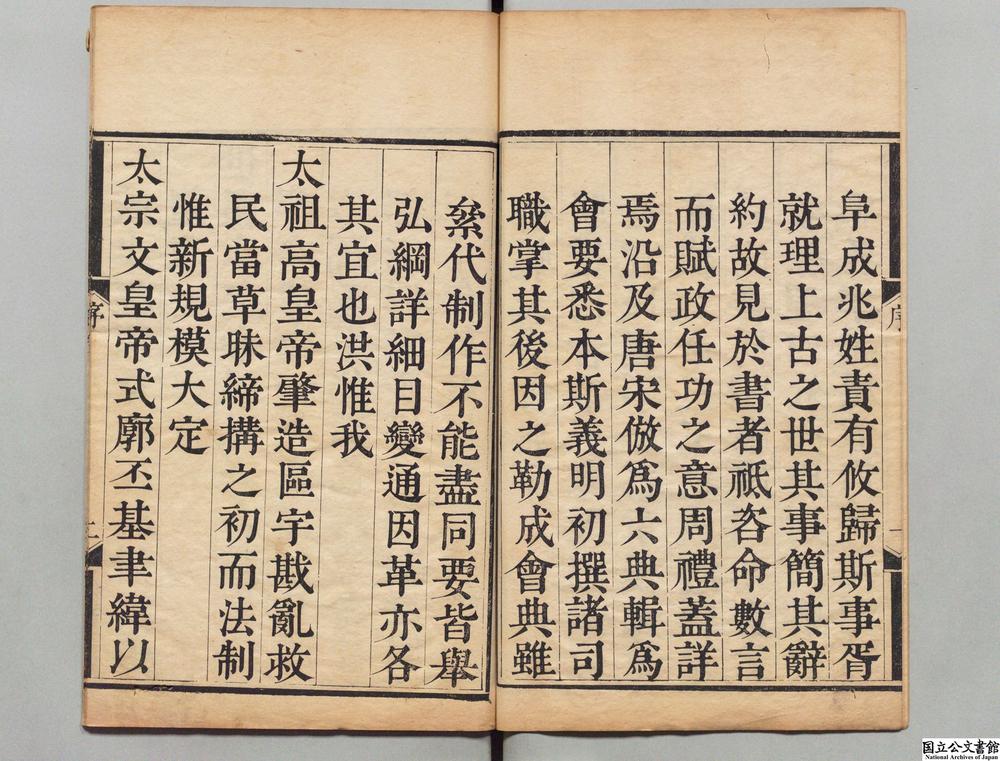 阜成兆姓責有攸歸斯事胥
就理上古之世其事簡其辭
約故見於書者祗咨命數言
而賦政任功之意周禮蓋詳
焉沿及唐宋倣爲六典輯爲
會要悉本斯義明初撰諸司
職掌其後因之勒成會典雖
絫代制作不能盡同要皆舉
弘綱詳細目變通因革亦各
其宜也洪惟我
太祖高皇帝肇造區宇戡亂救
民當草昧締搆之初而法制
惟新規模大定
太宗文皇帝式廓丕基聿緯以
序
序
国立公文書館
National Archives of Japan